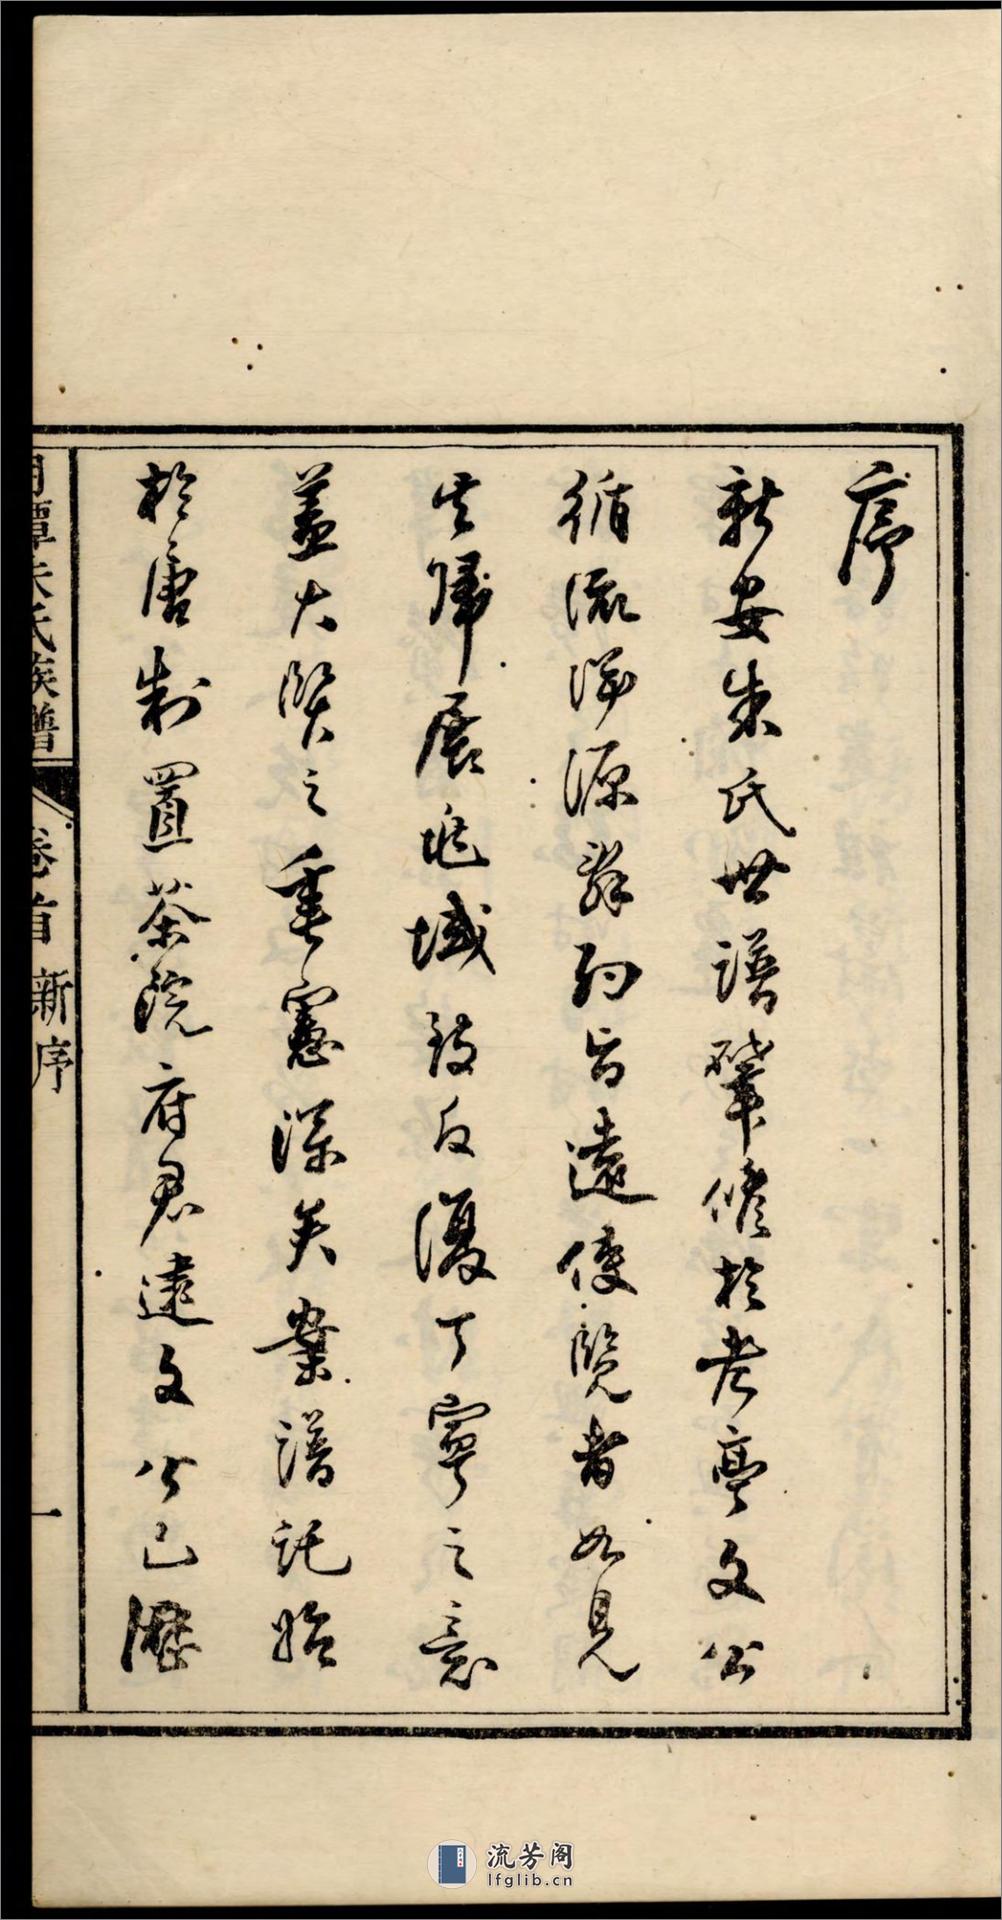 序
新安朱氏世譜肇修於考亭文公
循流溯源辭約旨遠使覽者如見
其歸展兆域致反復丁寧之意
蓋大賢之垂憲深矣案譜託始
於唐制置茶院府君逮文公已歷
月潭朱氏族譜 卷首 新序 一
流芳阁
lfglib.cn